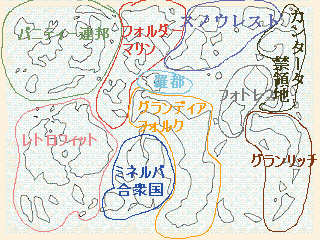 バーディー連邦
フォルダー
マリン
スノウレスト
カンタータ
禁領地
羅都
フォトレス
グランディア
フォルク
レトロフィット
ミネルバ
合衆国
グランリッチ